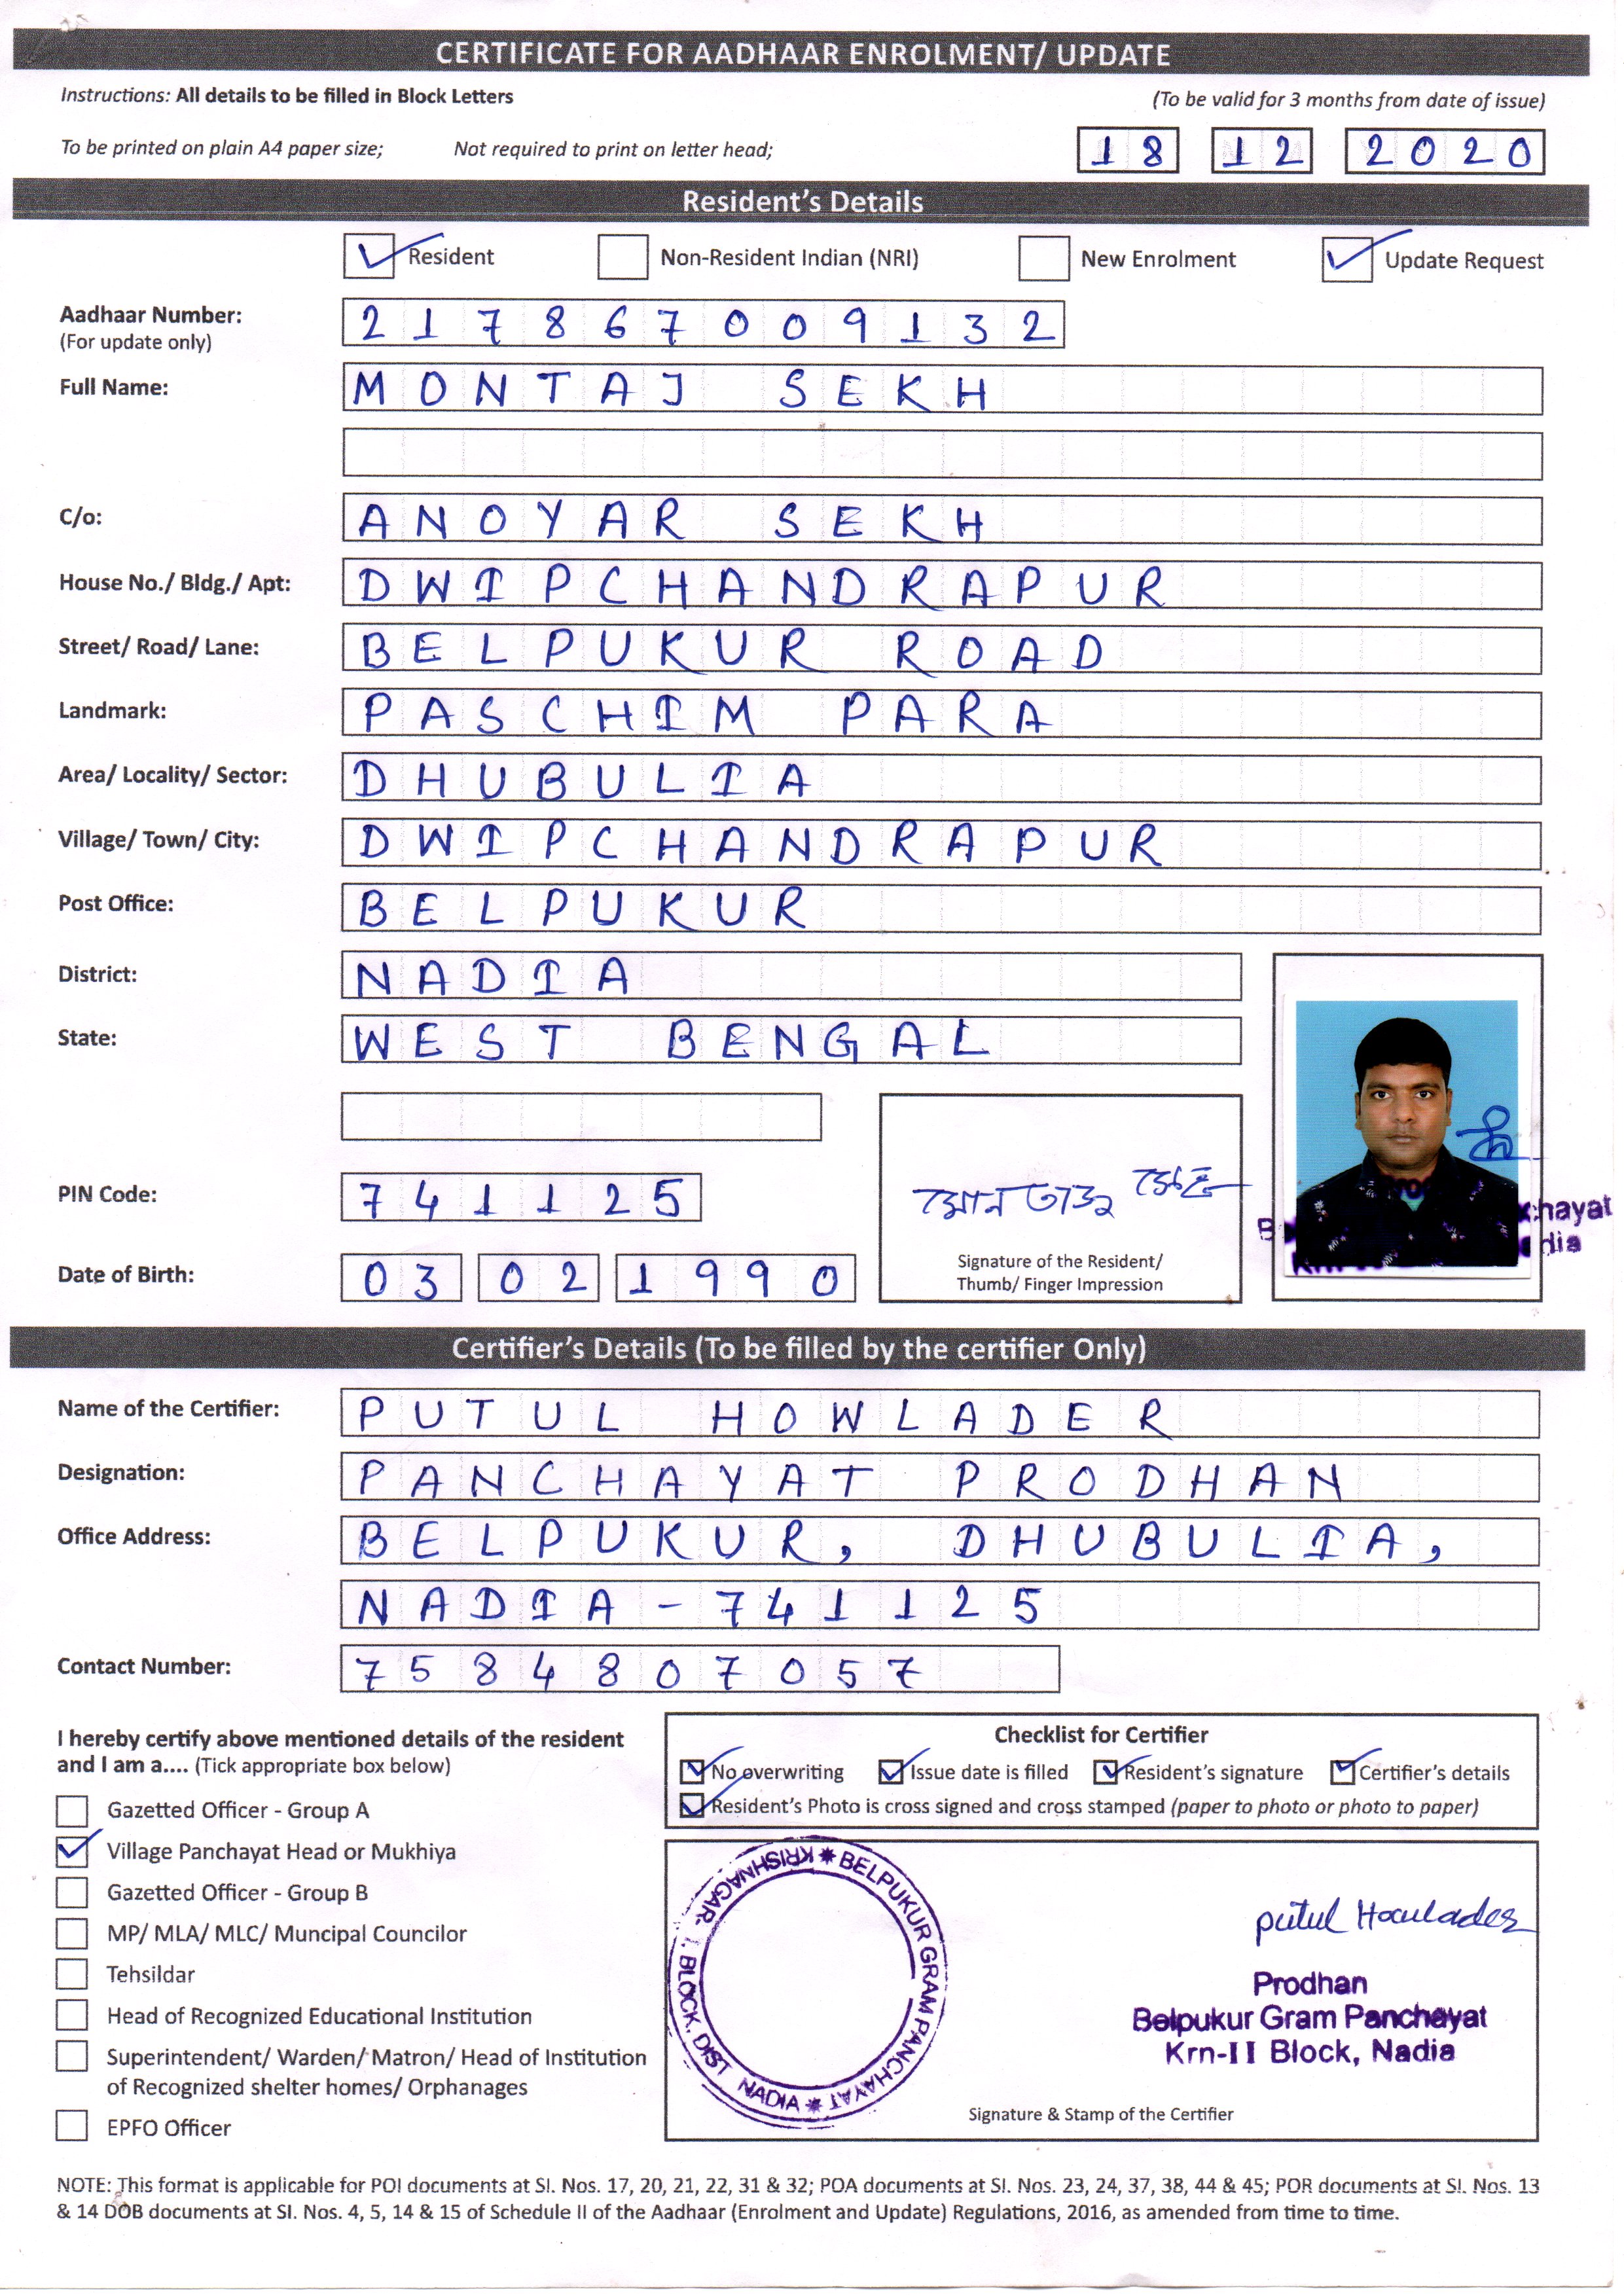 CERTIFICATE FOR AADHAAR ENROLMENT/ UPDATE
Instructions: All details to be filled in Block Letters
(To be valid for 3 months from date of issue)
To be printed on plain A4 paper size; Not required to print on letter head;
18 12 2020
Resident's Details
Resident Non-Resident Indian (NRI) New Enrolment Update Request
Aadhaar Number: 217867009132
(For update only)
Full Name: MONTAJ SEKH
C/o: ANOYAR SEKH
House No./ Bldg./ Apt: DWIPCHANDRAPUR
Street/ Road/ Lane: BELPUKUR ROAD
Landmark: PASCHIM PARA
Area/ Locality/ Sector: DHUBULIA
Village/ Town/ City: DWIPCHANDRAPUR
Post Office: BELPUKUR
District: NADIA
State: WEST BENGAL
PIN Code: 741125
Date of Birth: 03 02 1990
Signature of the Resident/
Thumb/ Finger Impression
Certifier's Details (To be filled by the certifier Only)
Name of the Certifier: PUTUL HOWLADER
Designation: PANCHAYAT PRODHAN
Office Address: BELPUKUR, DHUBULIA,
NADIA - 741125
Contact Number: 7584807057
I hereby certify above mentioned details of the resident
and I am a.... (Tick appropriate box below)
Gazetted Officer - Group A
Village Panchayat Head or Mukhiya
Gazetted Officer - Group B
MP/ MLA/ MLC/ Muncipal Councilor
Tehsildar
Head of Recognized Educational Institution
Superintendent/ Warden/ Matron/ Head of Institution
of Recognized shelter homes/ Orphanages
EPFO Officer
Checklist for Certifier
No overwriting Issue date is filled Resident's signature Certifier's details
Resident's Photo is cross signed and cross stamped (paper to photo or photo to paper)
BELPUKUR GRAM PANCHAYAT
KRISHNAGAR BLOCK. DIST NADIA
Putul Howlader
Prodhan
Belpukur Gram Panchayat
Krn-II Block, Nadia
Signature & Stamp of the Certifier
NOTE: This format is applicable for POI documents at SI. Nos. 17, 20, 21, 22, 31 & 32; POA documents at SI. Nos. 23, 24, 37, 38, 44 & 45; POR documents at SI. Nos. 13
& 14 DOB documents at SI. Nos. 4, 5, 14 & 15 of Schedule II of the Aadhaar (Enrolment and Update) Regulations, 2016, as amended from time to time.